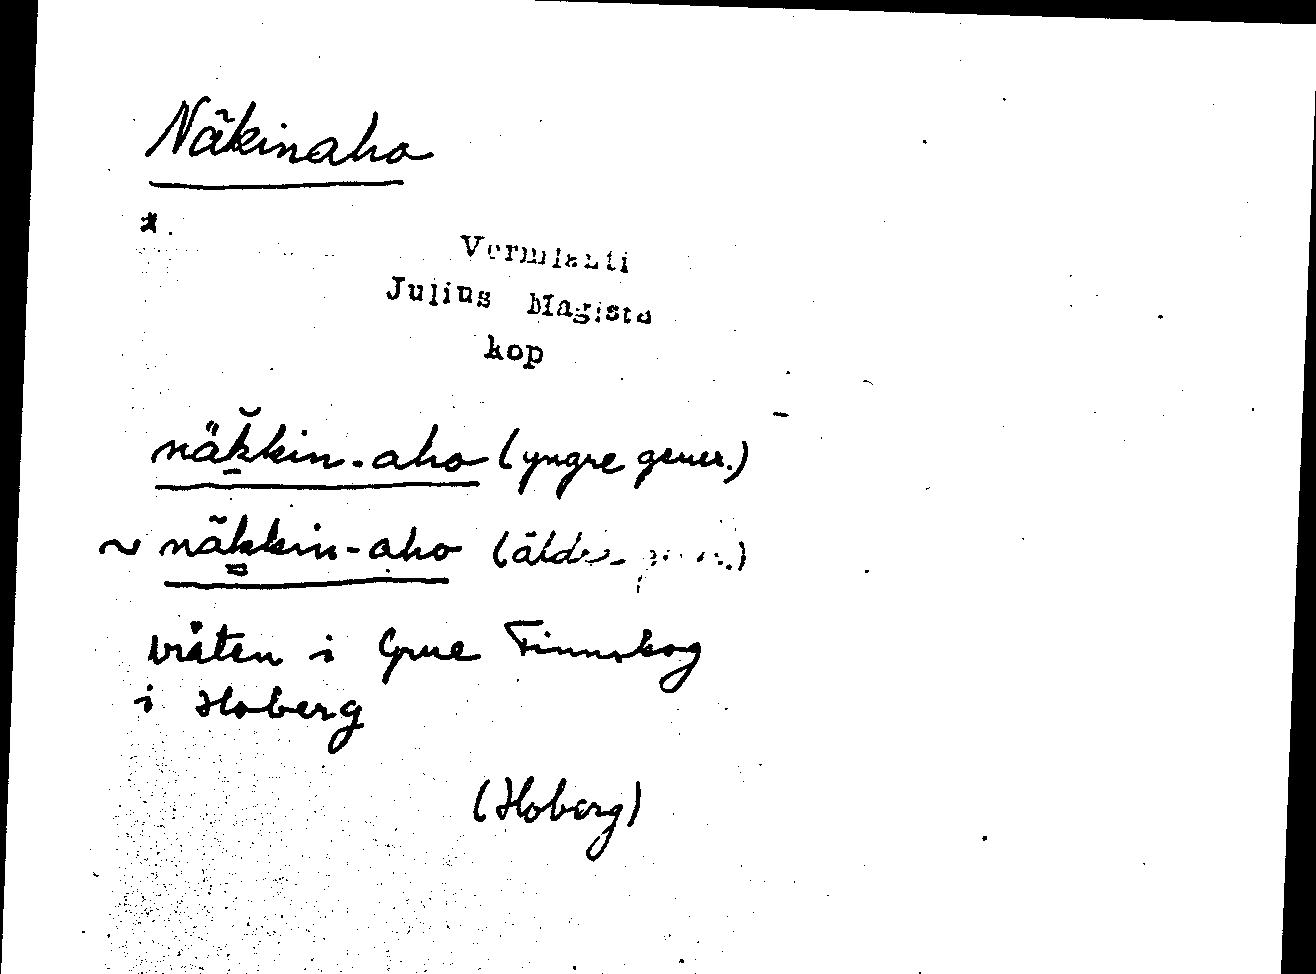 Näkinaho
*.
Vermlanti
Julius Mägiste
kop
näk̆kin-aho (yngre gener.)
~ näkkin-aho (äldre gener.)
bråten i Grue Finnskog
i Hoberg
(Hoberg)